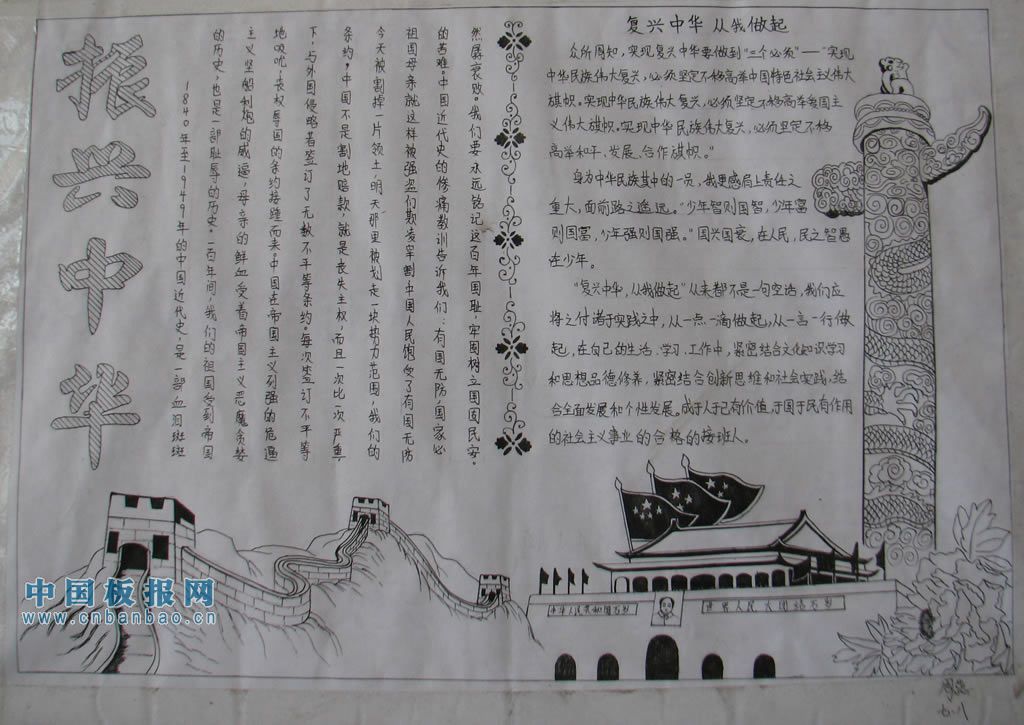 振兴中华
1840年至1949年的中国近代史,是一部血泪斑斑
的历史,也是一部耻辱的历史。一百年间,我们的祖国受到帝国
主义坚船利炮的威逼,母亲的鲜血受着帝国主义恶魔贪婪
地吸吮,丧权辱国的条约接踵而来。中国在帝国主义列强的危逼
下,与外国侵略者签订了无数不平等条约。每次签订不平等
条约,中国不是割地赔款,就是丧失主权,而且一次比一次严重,
今天被割掉一片领土,明天那里被划走一块势力范围,我们的
祖国母亲就这样被强盗们欺凌宰割中国人民饱受了有国无防
的苦难。中国近代史的惨痛教训告诉我们:有国无防,国家必
然孱衰败。我们要永远铭记这百年国耻,牢固树立国固民安。
复兴中华 从我做起
众所周知,实现复兴中华要做到“三个必须”——“实现
中华民族伟大复兴,必须坚定不移高举中国特色社会主义伟大
旗帜.实现中华民族伟大复兴,必须坚定不移高举爱国主
义伟大旗帜.实现中华民族伟大复兴,必须坚定不移
高举和平、发展、合作旗帜。”
身为中华民族其中的一员,我更感肩上责任之
重大,面前路之遥远。“少年智则国智,少年富
则国富,少年强则国强。”国兴国衰,在人民,民之智愚
在少年。
“复兴中华,从我做起”从来都不是一句空话,我们应
将之付诸于实践之中,从一点一滴做起,从一言一行做
起,在自己的生活、学习、工作中,紧密结合文化知识学习
和思想品德修养,紧密结合创新思维和社会实践,结
合全面发展和个性发展。成于人于己有价值,于国于民有作用
的社会主义事业的合格的接班人。
中华人民共和国万岁
世界人民大团结万岁
中国板报网
www.cnbanbao.cn